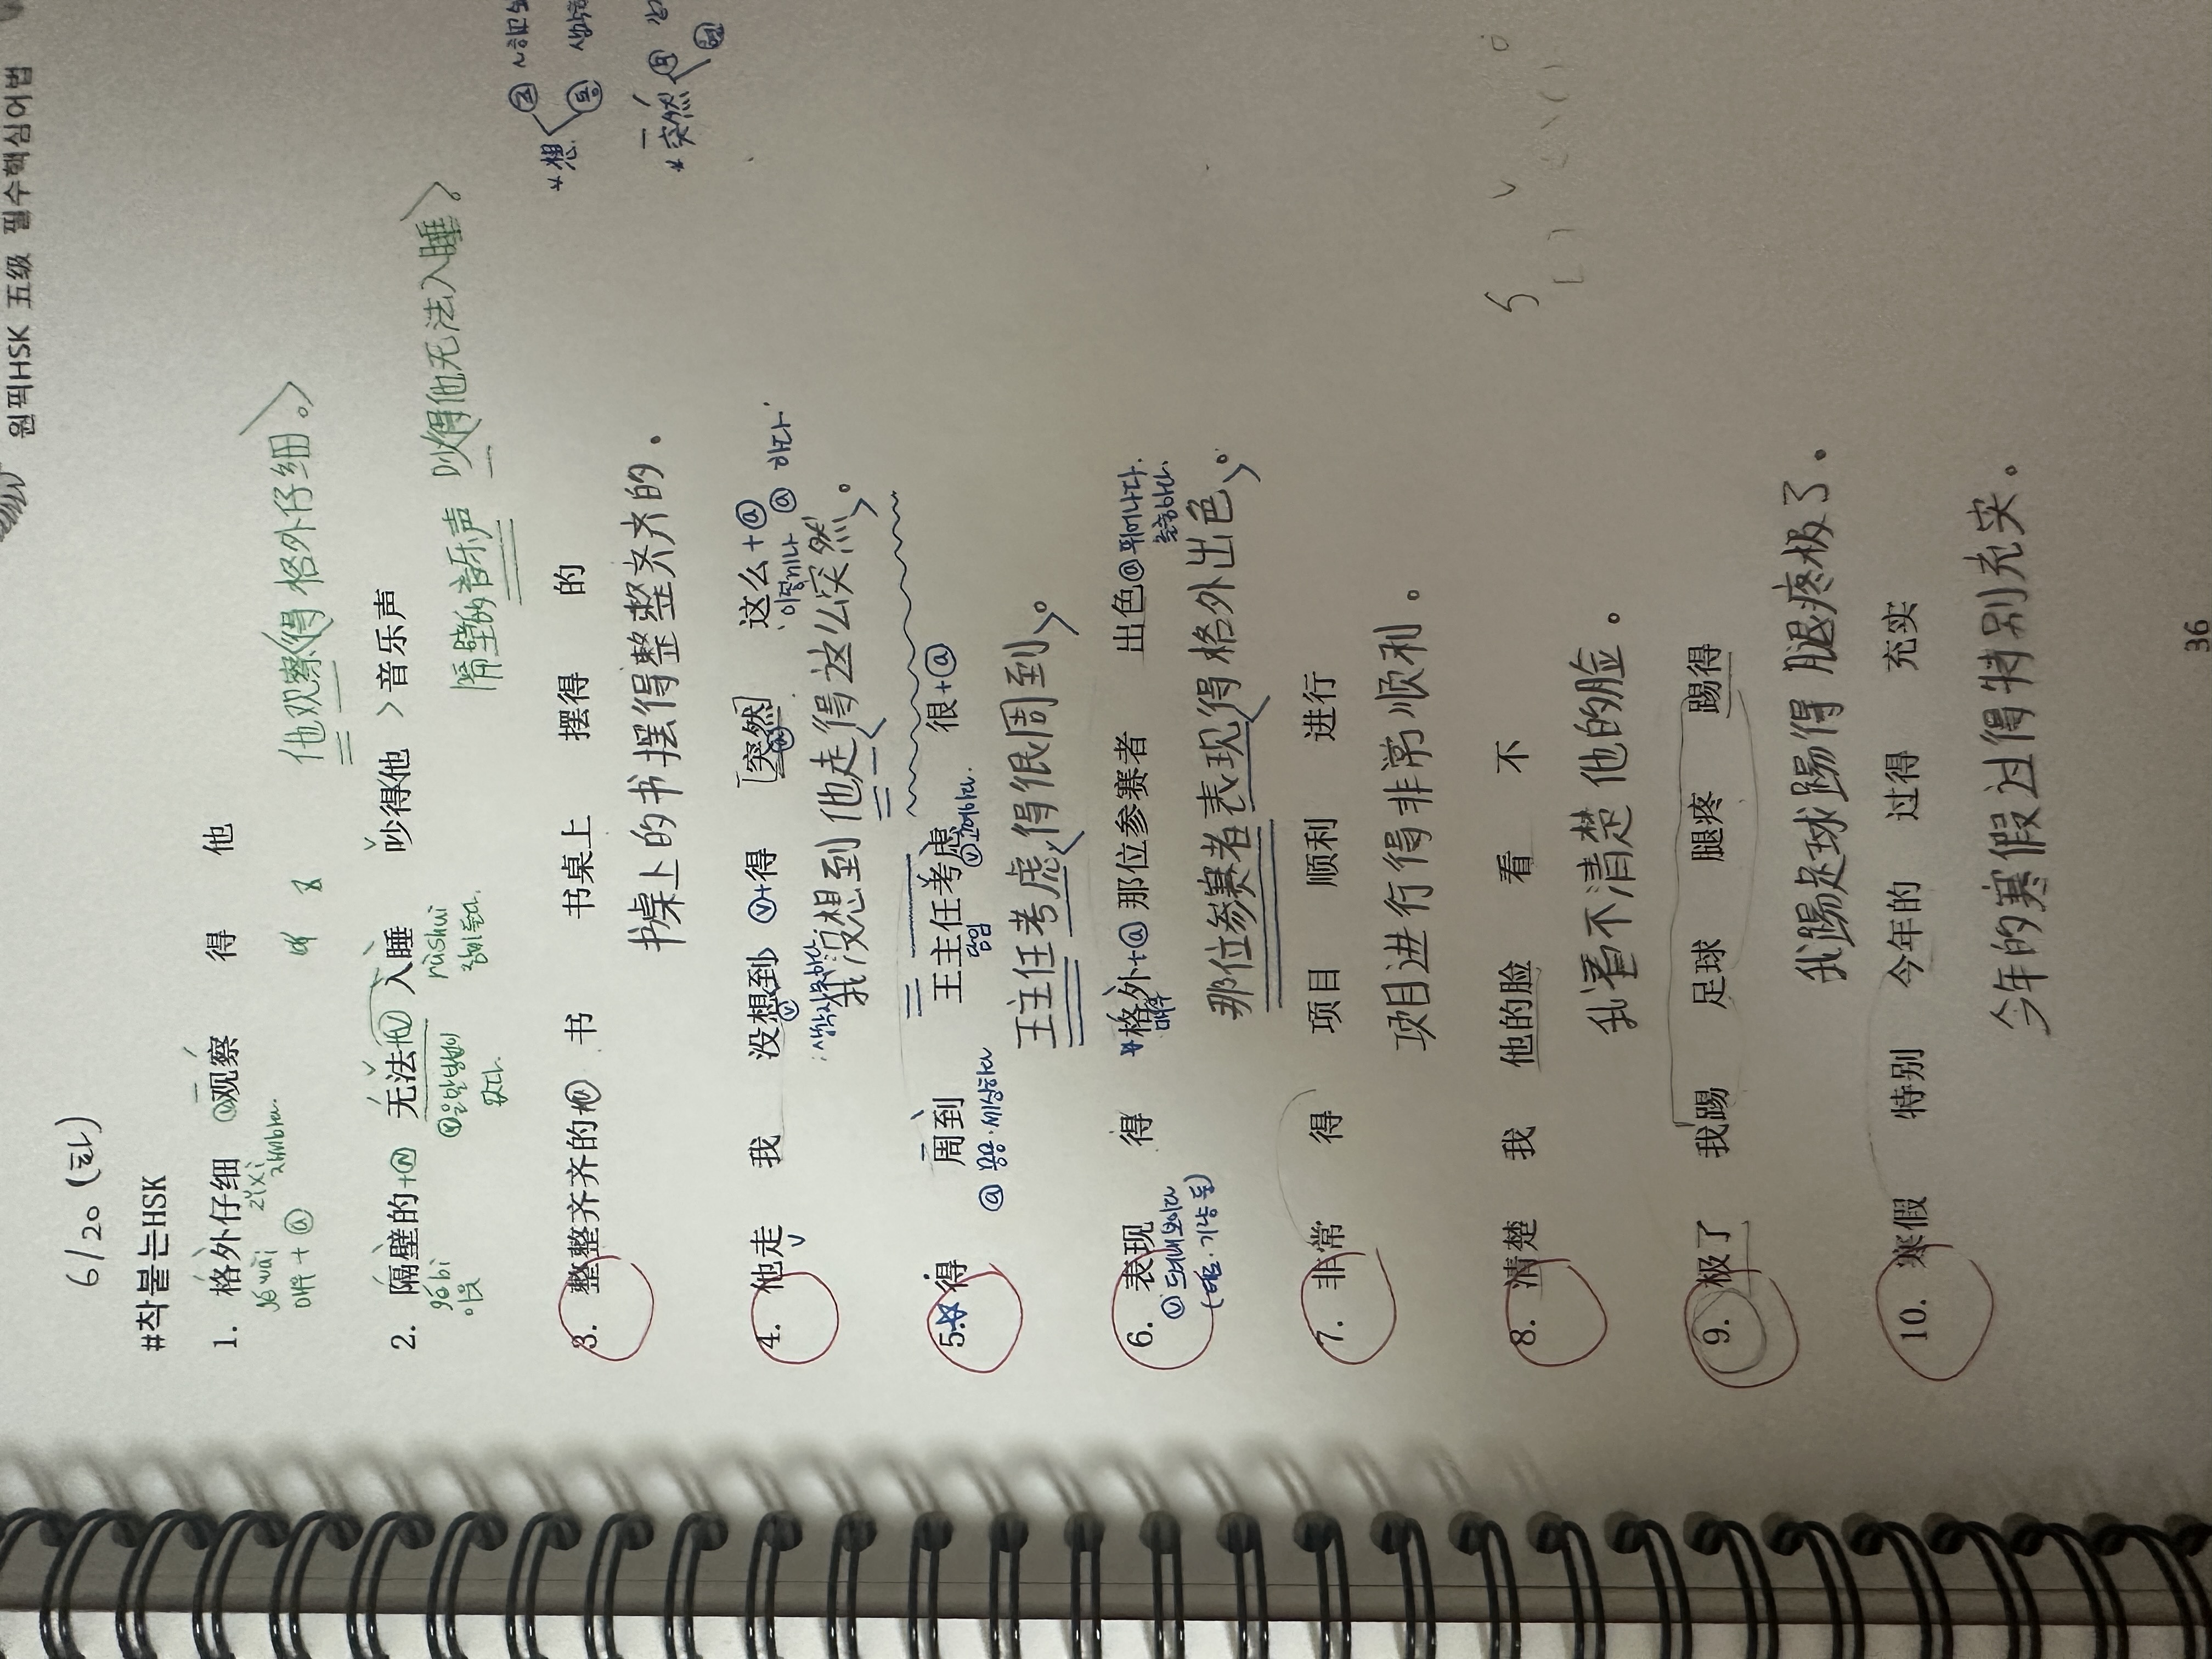 원픽HSK 五级 필수핵심어법
6/20 (화)
#착붙는HSK
1. 格外仔细 ⓥ观察 得 他
géwài zǐxì
매우 + ⓐ 자세하다.
他观察得格外仔细。
2. 隔壁的+Ⓝ 无法+ⓥ 入睡 吵得他 > 音乐声
gébì ⓥ을 할 방법이 rùshuì
이웃 없다. 잠이 들다.
隔壁的音乐声 吵得他无法入睡。
*想
3. 整整齐齐的 书 书桌上 摆得 的
书桌上的书摆得整整齐齐的.
*突然
4. 他走 我 没想到 ⓥ+得 突然 这么+ⓐ
생각지 못하다 이렇게나 ⓐ 하다.
我没想到他走得这么突然。
5. 得 周到 王主任考虑 很+ⓐ
ⓐ 꼼꼼·세심하다 담임 ⓥ고려하다.
王主任考虑得很周到。
6. 表现 得 *格外+ⓐ 那位参赛者 出色ⓐ뛰어나다.
ⓥ 드러내 보이다 매우 출중하다.
(행동·기능 등)
那位参赛者表现得格外出色。
7. 非常 得 项目 顺利 进行
项目进行得非常顺利。
8. 清楚 我 他的脸 看 不
我看不清楚他的脸。
9. 极了 我踢 足球 腿疼 踢得
我踢足球踢得腿疼极了。
10. 寒假 特别 今年的 过得 充实
今年的寒假过得特别充实。
36